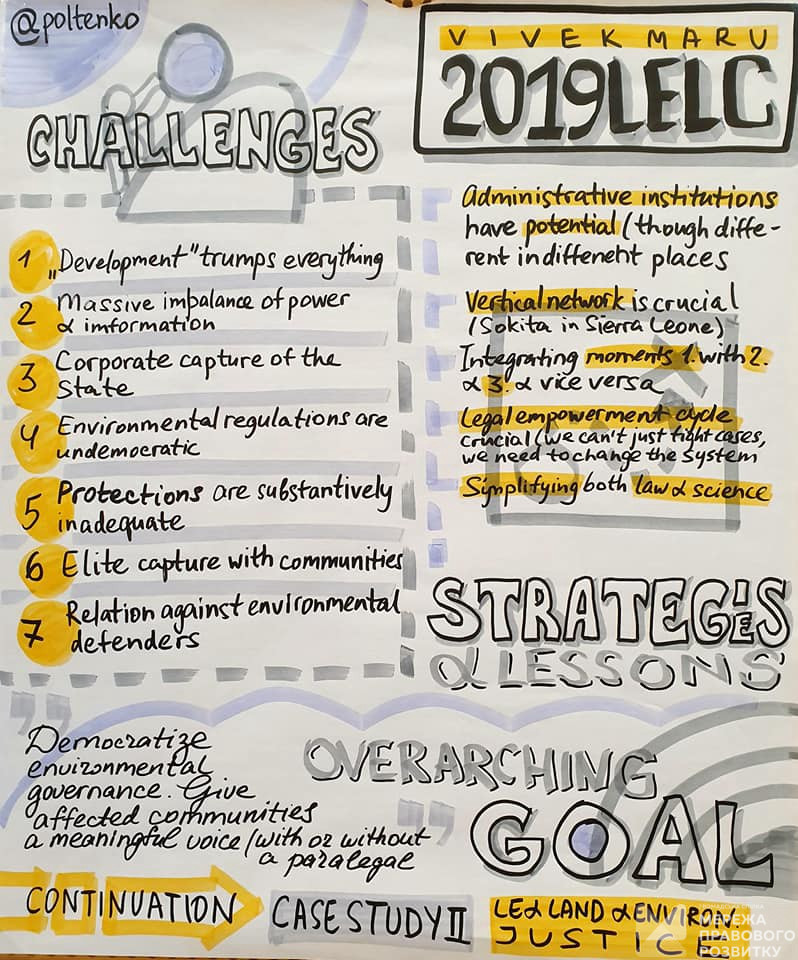 @poltenko
VIVEK MARU
2019LELC
CHALLENGES
1 „Development" trumps everything
2 Massive imbalance of power
& imformation
3 Corporate capture of the
State
4 Environmental regulations are
undemocratic
5 Protections are substantively
inadequate
6 Elite capture with communities
7 Relation against environmental
defenders
Administrative institutions
have potential (though diffe-
rent in different places
Vertical network is crucial
(Sokita in Sierra Leone)
Integrating moments 1. with 2.
& 3. & vice versa
Legal empowerment cycle
crucial (we can't just fight cases,
we need to change the system
Simplifying both law & science
STRATEGIES
& LESSONS
"Democratize
environmental
governance. Give
affected communities
a meaningful voice (with or without
a paralegal"
OVERARCHING
GOAL
CONTINUATION
CASE STUDY II
LE & LAND & ENVIRON.
JUSTICE
МЕРЕЖА
ПРАВОВОГО
РОЗВИТКУ